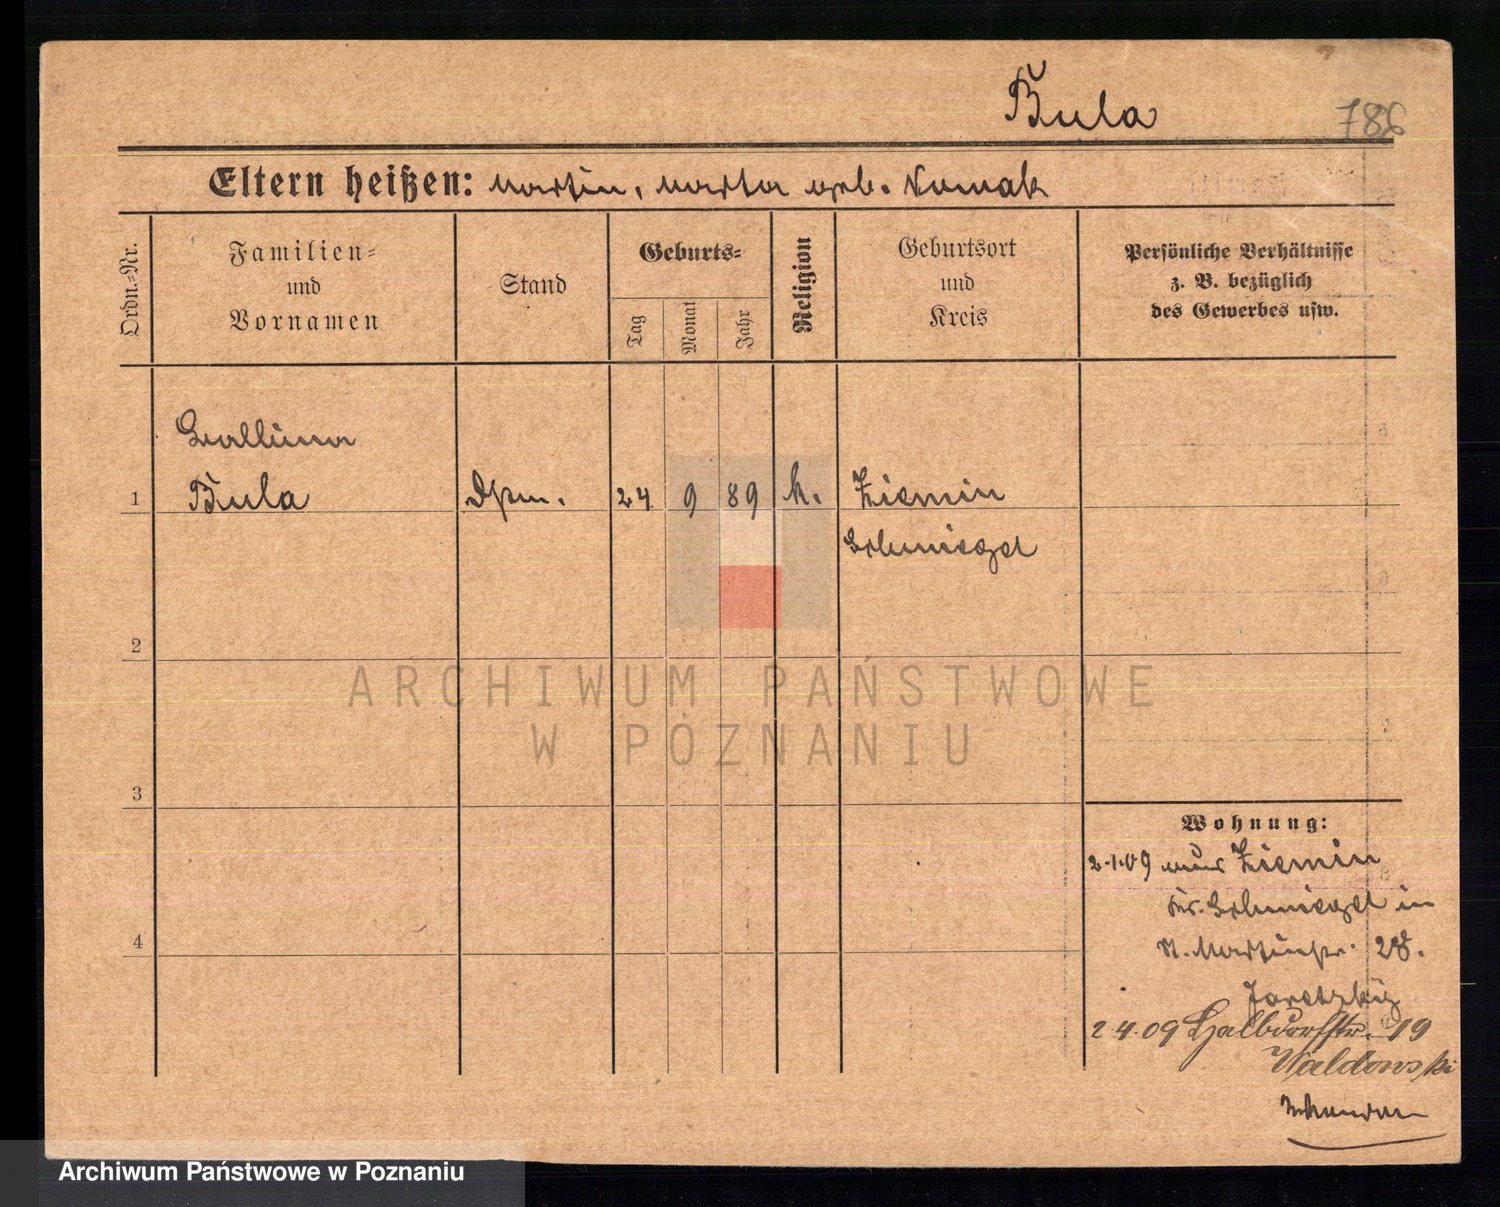 Bula
786
Eltern heißen: Martin, Marta geb. Nowak
Ordn.-Nr.
Familien-
und
Vornamen
Stand
Geburts-
Tag
Monat
Jahr
Religion
Geburtsort
und
Kreis
Persönliche Verhältnisse
z. B. bezüglich
des Gewerbes usw.
1
Bula
24 9 89 k. Ziemin
Schmiegel
2
ARCHIWUM PAŃSTWOWE
W POZNANIU
3
Wohnung:
2.1.09 aus Ziemin
Kr. Schmiegel in
St. Martinstr. 28.
4
2.4.09 Halbdorfstr. 19
Waldowski
Archiwum Państwowe w Poznaniu